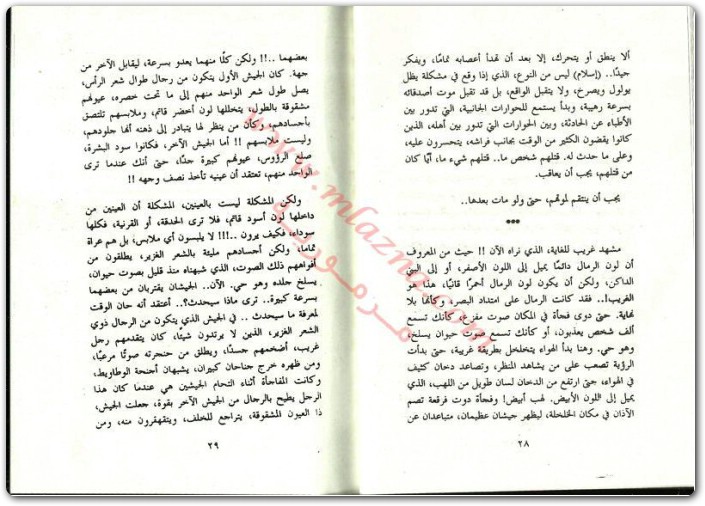 ألا ينطق أو يتحرك، إلا بعد أن تهدأ أعصابه تمامًا، ويفكر
جيدًا.. (إسلام) ليس من النوع، الذي إذا وقع في مشكلة يظل
يولول ويصرخ، ولا يتقبل الواقع، بل قد تقبل موت أصدقائه
بسرعة رهيبة، وبدأ يستمع للحوارات الجانبية، التي تدور بين
الأطباء عن الحادثة، وبين الحوارات التي تدور بين أهله، الذين
كانوا يقضون الكثير من الوقت بجانب فراشه، يتحسرون عليه،
وعلى ما حدث له. قتلهم شخص ما.. قتلهم شيء ما، أيًا كان
من قتلهم، يجب أن يعاقب.
يجب أن ينتقم لموتهم، حتى ولو مات بعدها..
***
مشهد غريب للغاية، الذي نراه الآن !! حيث من المعروف
أن لون الرمال دائمًا يميل إلى اللون الأصفر، أو إلى البني
الداكن، ولكن أن يكون لون الرمال أحمرًا قانيًا، هذا هو
الغريب!.. فقد كانت الرمال على امتداد البصر، وكأنها بلا
نهاية. حتى دوى فجأة في المكان صوت مفزع، كأنك تسمع
ألف شخص يعذبون، أو كأنك تسمع صوت حيوان يسلخ،
وهو حي. وهنا بدأ الهواء يتخلخل بطريقة غريبة، حتى بدأت
الرؤية تصعب على من يشاهد المنظر، وتصاعد دخان كثيف
في الهواء، حتى ارتفع من الدخان لسان طويل من اللهب، الذي
يميل إلى اللون الأبيض. لهب أبيض! وفجأة دوت فرقعة تصم
الآذان في مكان الخلخلة، ليظهر جيشان عظيمان، متباعدان عن
٢٨
بعضهما ..!! ولكن كلًا منهما يعدو بسرعة، ليقابل الآخر من
جهة. كان الجيش الأول يتكون من رجال طوال شعر الرأس،
يصل طول شعر الواحد منهم إلى ما تحت خصره، عيونهم
مشقوقة بالطول، يتخللها لون أخضر قاتم، وملابسهم تلتصق
بأجسادهم، وكأن من ينظر لها يتبادر إلى ذهنه أنها جلودهم،
وليست ملابسهم !! أما الجيش الآخر، فكانوا سود البشرة،
صلع الرؤوس، عيونهم كبيرة جدًا، حتى أنك عندما ترى
الواحد منهم، تعتقد أن عينيه تأخذ نصف وجهه !!
ولكن المشكلة ليست بالعينين، المشكلة أن العينين من
داخلها لون أسود قاتم، فلا ترى الحدقة، أو القرنية، فكلها
سوداء، فكيف يرون ..!!! لا يلبسون أي ملابس، بل هم عراة
تماما، ولكن أجسادهم مليئة بالشعر الغزير، يطلقون من
أفواههم ذلك الصوت، الذي شبهناه منذ قليل بصوت حيوان،
يسلخ جلده وهو حي. .الجيشان يقتربان من بعضهما
بسرعة كبيرة.. ترى ماذا سيحدث؟.. أعتقد أنه حان الوقت
لمعرفة ما سيحدث .. في الجيش الذي يتكون من الرجال ذوي
الشعر الغزير، الذين لا يرتدون شيئا، كان يتقدمهم رجل
غريب، أضخمهم جسدًا، ويطلق من حنجرته صوتًا مرعبًا،
ومن ظهره خرج جناحان كبيران، يشبهان أجنحة الوطاويط،
وكانت المفاجأة أثناء التحام الجيشين هي عندما كان هذا
الرجل يطيح بالرجال من الجيش الآخر بقوة، جعلت الجيش،
ذا العيون المشقوقة، يتراجع للخلف، ويتقهقرون منه، ومن
٢٩
www.mlazna.com